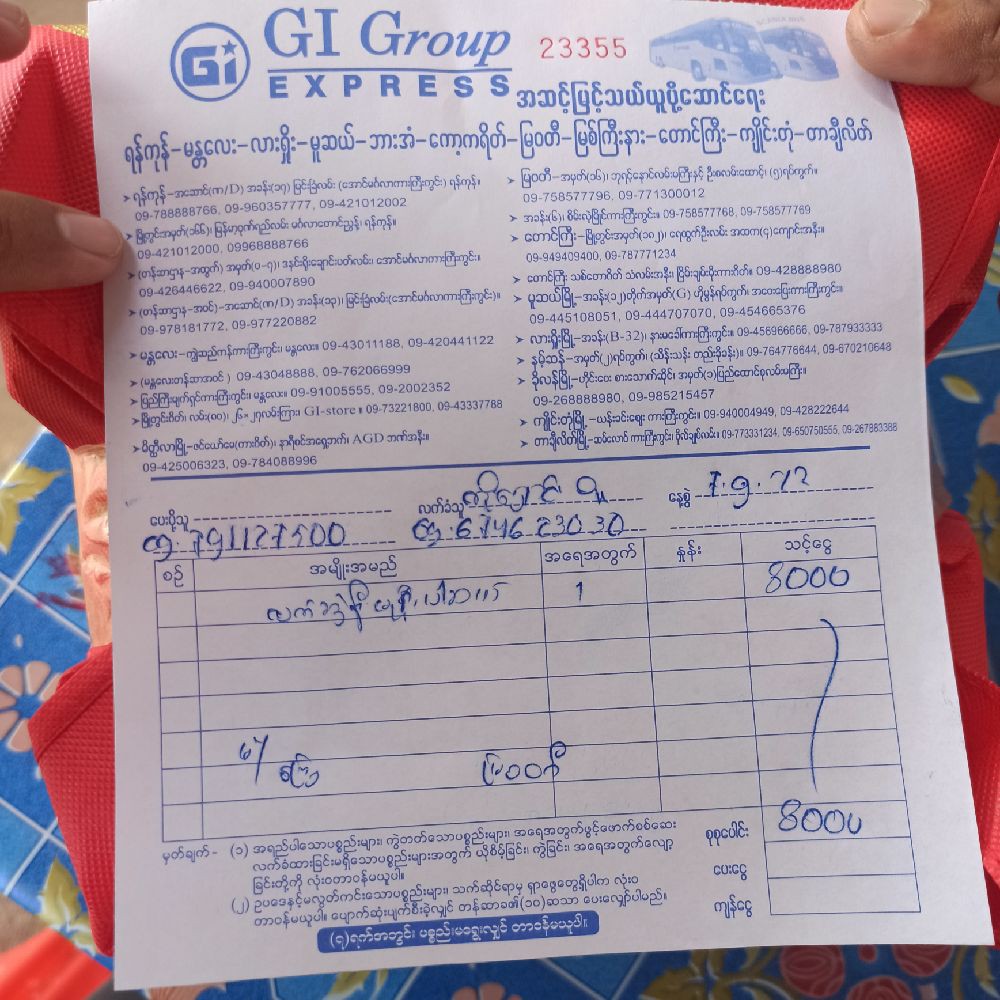 GI
GI Group
EXPRESS
23355
SCANIA BUS
အဆင့်မြင့်သယ်ယူပို့ဆောင်ရေး
ရန်ကုန်-မန္တလေး-လားရှိုး-မူဆယ်-ဘားအံ-ကော့ကရိတ်-မြဝတီ-မြစ်ကြီးနား-တောင်ကြီး-ကျိုင်းတုံ-တာချီလိတ်
➤ ရန်ကုန်-အဆောင်(ဏ/D) အခန်း(၁၇) မြင်းခြံလမ်း (အောင်မင်္ဂလာကားကြီးကွင်း) ရန်ကုန်။
09-788888766, 09-960357777, 09-421012002
➤ မြို့တွင်းအမှတ်(၁၆၆)၊ မြန်မာ့ဂုဏ်ရည်လမ်း မင်္ဂလာတောင်ညွန့်၊ ရန်ကုန်။
09-421012000, 09968888766
➤ (တန်ဆာဌာန-အထွက်) အမှတ်(ပ-၇)၊ ဒနင်းရိုးချောင်းပတ်လမ်း၊ အောင်မင်္ဂလာကားကြီးကွင်း။
09-426446622, 09-940007890
➤ (တန်ဆာဌာန-အဝင်)-အဆောင်(ဏ/D) အခန်း(၁၃) မြင်းခြံလမ်း(အောင်မင်္ဂလာကားကြီးကွင်း)။
09-978181772, 09-977220882
➤ မန္တလေး-ကျွဲဆည်ကန်ကားကြီးကွင်း၊ မန္တလေး။ 09-43011188, 09-420441122
➤ (မန္တလေးတန်ဆာအဝင်) 09-43048888, 09-762066999
➤ ပြည်ကြီးမျက်ရှင်ကားကြီးကွင်း၊ မန္တလေး။ 09-91005555, 09-2002352
➤ မြို့တွင်းဂိတ်၊ လမ်း(၈၀)၊ ၂၆×၂၇လမ်းကြား၊ GI-store ။ 09-73221800, 09-43337788
➤ မိတ္ထီလာမြို့-ဇင်ယော်မေ(ကားဂိတ်)၊ နာရီစင်အရှေ့ဘက်၊ AGD ဘဏ်အနီး။
09-425006323, 09-784088996
➤ မြဝတီ-အမှတ်(၁၆)၊ ဘုရင့်နောင်လမ်းမကြီးနှင့် ဦးစလမ်းထောင့်၊ (၅)ရပ်ကွက်။
09-758577796, 09-771300012
➤ အခန်း(၆)၊ စိမ်းလဲ့မြိုင်ကားကြီးကွင်း။ 09-758577768, 09-758577769
➤ တောင်ကြီး-မြို့တွင်းအမှတ်(၁၈၂)၊ ရေထွက်ဦးလမ်း အထက(၄)ကျောင်းအနီး။
09-949409400, 09-787771234
➤ တောင်ကြီး သစ်တောဂိတ် သံလမ်းအနီး၊ ငြိမ်းချမ်းမိုးကားဂိတ်။ 09-428888980
➤ မူဆယ်မြို့-အခန်း(၁၂)တိုက်အမှတ်(G) ဟိုမွန်ရပ်ကွက်၊ အဝေးပြေးကားကြီးကွင်း။
09-445108051, 09-444707070, 09-454665376
➤ လားရှိုးမြို့-အခန်း(B-32)၊ နားမခေါ်ကားကြီးကွင်း။ 09-456966666, 09-787933333
➤ နမ့်ဆန်-အမှတ်(၂)ရပ်ကွက်၊ (သိန်းသန်း တည်းခိုခန်း)။ 09-764776644, 09-670210648
➤ ခိုလန်မြို့-ဟိုင်းဝေး စားသောက်ဆိုင်၊ အမှတ်(၁)ပြည်ထောင်စုလမ်းမကြီး။
09-268888980, 09-985215457
➤ ကျိုင်းတုံမြို့-ယန်းခင်းဈေး ကားကြီးကွင်း။ 09-940004949, 09-428222644
➤ တာချီလိတ်မြို့-ဆမ်လောင် ကားကြီးကွင်း၊ ဗိုလ်ချုပ်လမ်း။ 09-773331234, 09-650750555, 09-267883388
ပေးပို့သူ
လက်ခံသူ
နေ့စွဲ 7.9.22
၀၉.791127500
၀၉.674623030
စဉ် အမျိုးအမည် အရေအတွက် နှုန်း သင့်ငွေ
1 8000
မြဝတီ
စုစုပေါင်း 8000
ပေးငွေ
ကျန်ငွေ
မှတ်ချက်- (၁) အရည်ပါသောပစ္စည်းများ၊ ကွဲတတ်သောပစ္စည်းများ၊ အရေအတွက်ဖွင့်ဖောက်စစ်ဆေး
လက်ခံထားခြင်းမရှိသောပစ္စည်းများအတွက် ယိုစိမ့်ခြင်း၊ ကွဲခြင်း၊ အရေအတွက်လျော့
ခြင်းတို့ကို လုံးဝတာဝန်မယူပါ။
(၂) ဥပဒေနှင့်မလွတ်ကင်းသောပစ္စည်းများ၊ သက်ဆိုင်ရာမှ ရှာဖွေတွေ့ရှိပါက လုံးဝ
တာဝန်မယူပါ။ ပျောက်ဆုံးပျက်စီးခဲ့လျှင် တန်ဆာခ၏(၁၀)ဆသာ ပေးလျော်ပါမည်။
(၇)ရက်အတွင်း ပစ္စည်းမရွေးလျှင် တာဝန်မယူပါ။